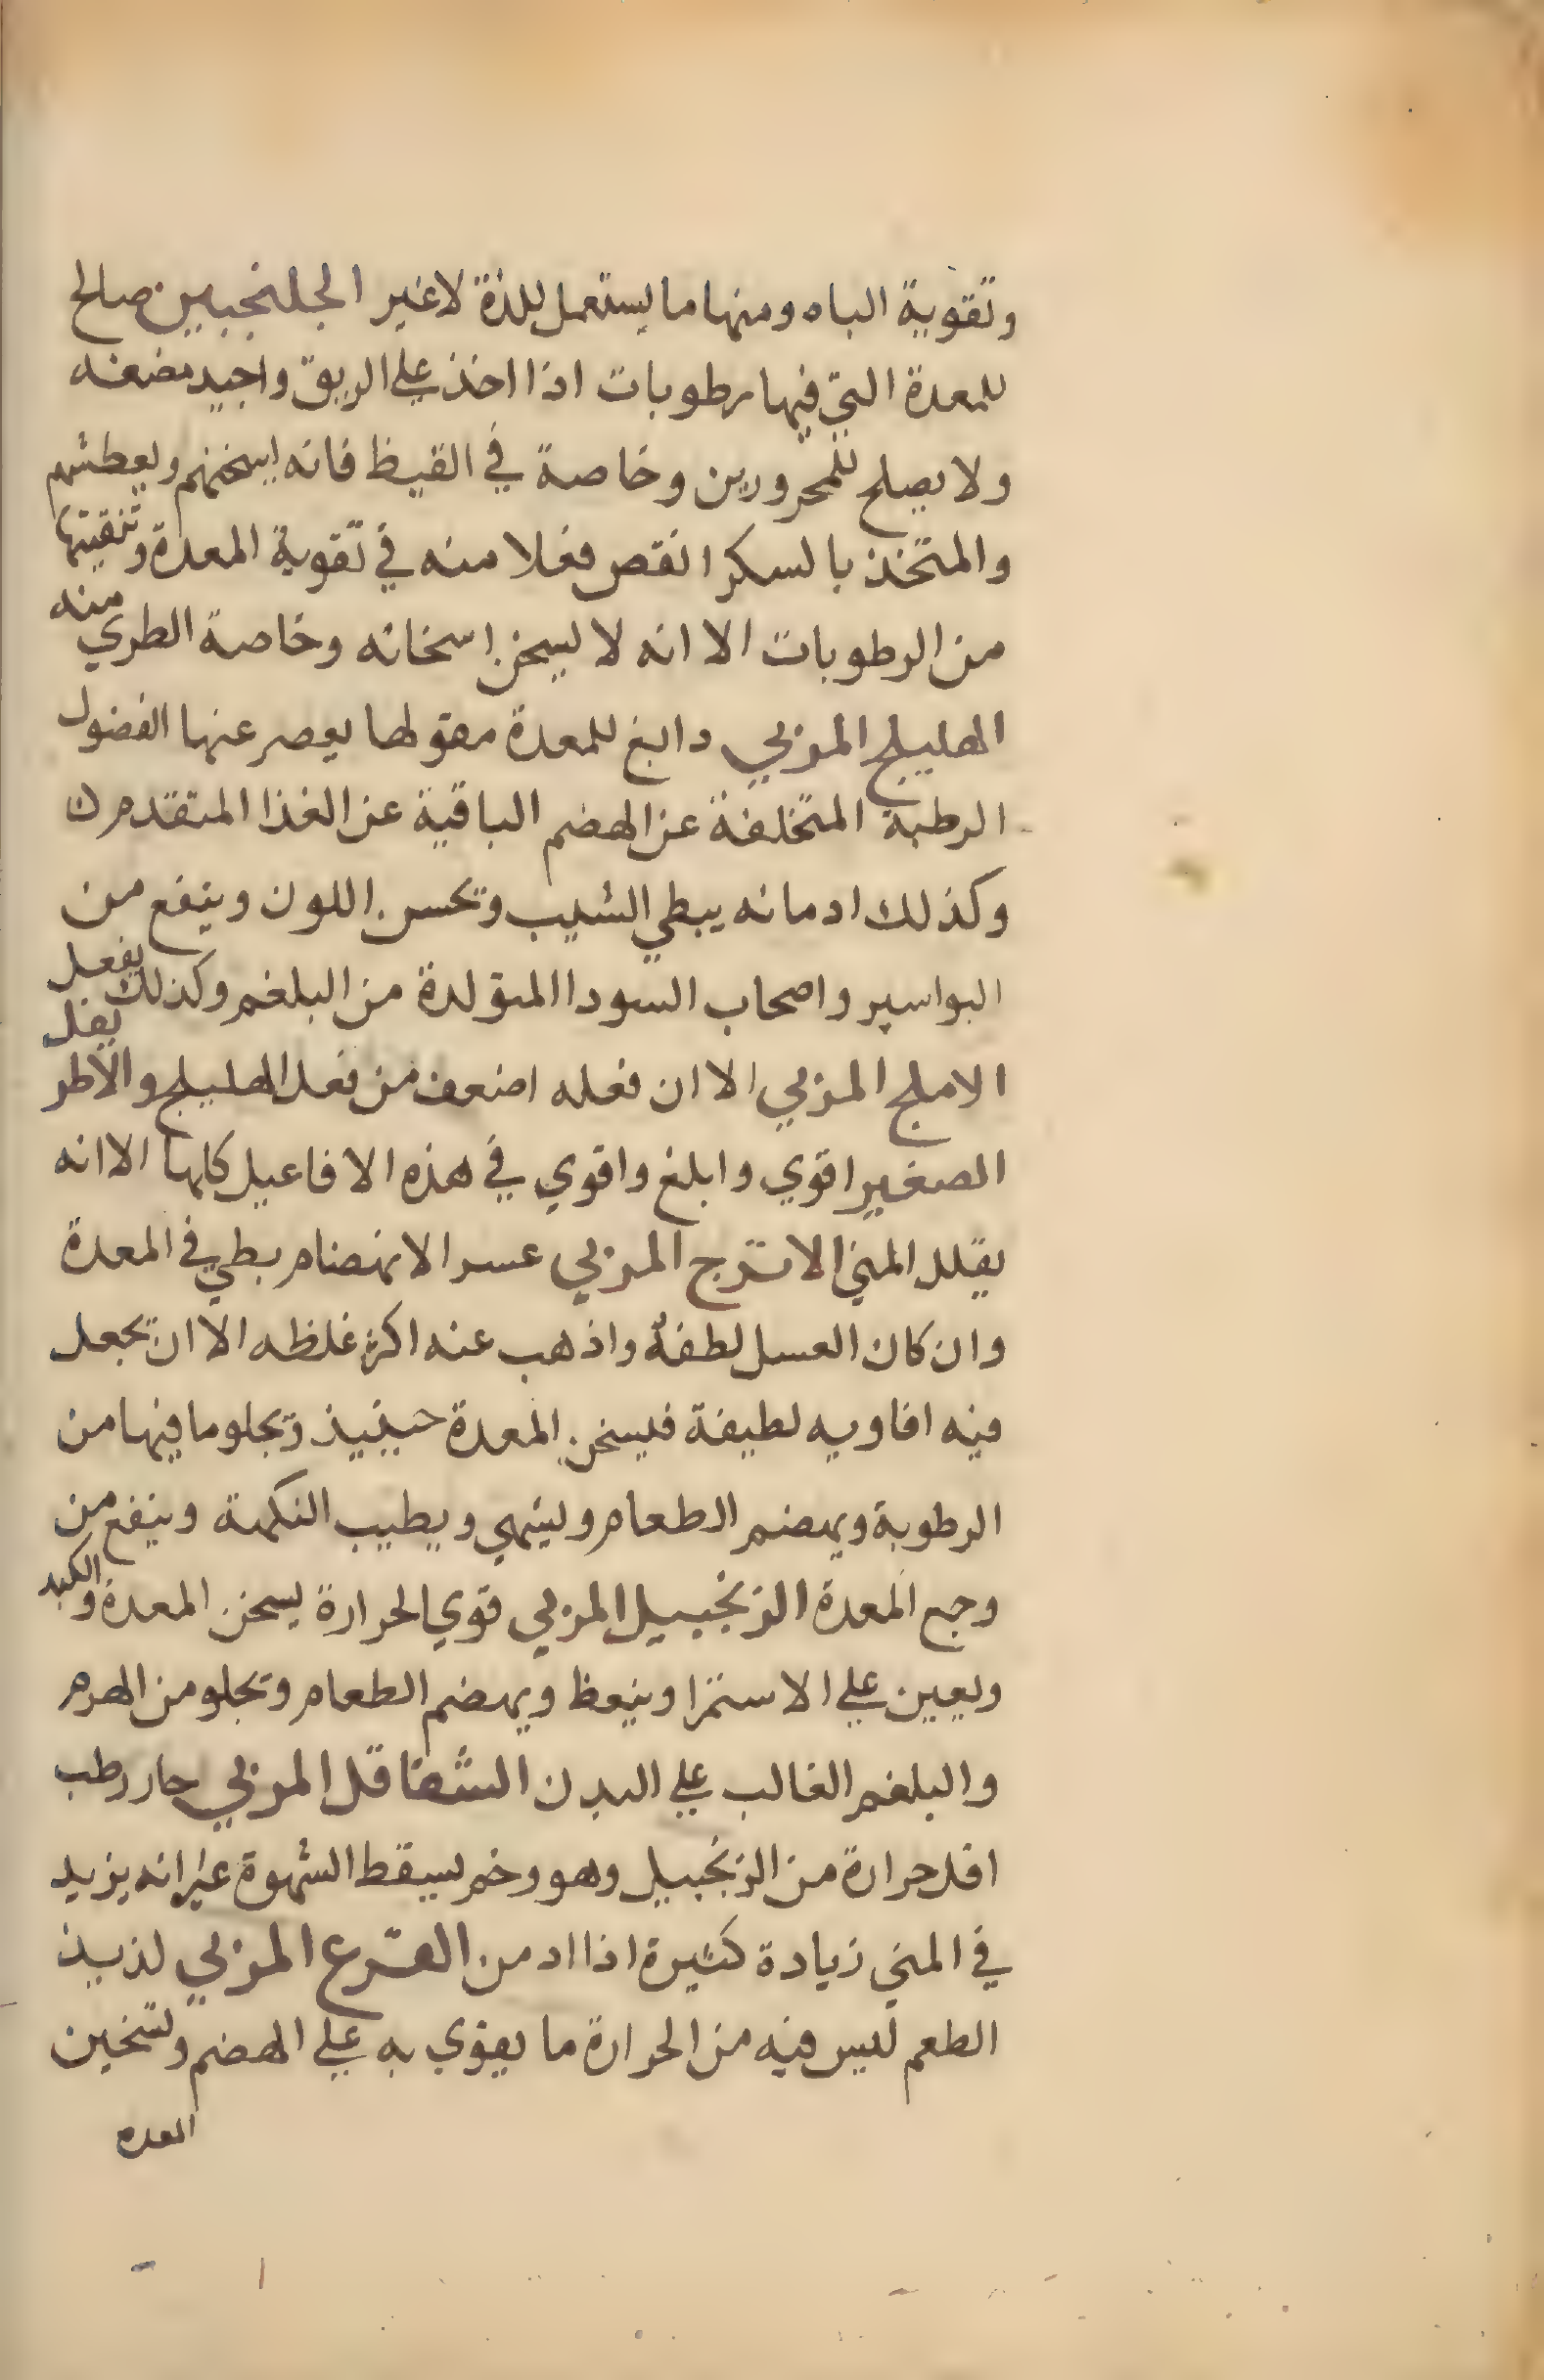 وتقوية الباه ومنها ما يستعمل للذة لا غير الجلنجبين صالح
للمعدة التي فيها رطوبات اذا اخذ علي الريق واجيد مضغه
ولا يصلح للمحرورين وخاصة في القيظ فانه يسخنهم ويعطشهم
والمتخذ بالسكر انقص فعلا منه في تقوية المعدة وتنقيتها
من الرطوبات الا انه لا يسخن اسخانه وخاصة الطري منه
الهليلج المربي دابغ للمعدة مقو لها يعصر عنها الفضول
الرطبة المتخلفة عن الهضم الباقية عن الغذا المتقدم
وكذلك ادمانه يبطي الشيب وتحسن اللون وينفع من
البواسير واصحاب السودا المتولدة من البلغم وكذلك يفعل
الاملج المربي الا ان فعله اضعف من فعل الهليلج والاطر يفل
الصغير اقوي وابلغ واقوي في هذه الافاعيل كلها الا انه
يقلل المني الاترج المربي عسر الانهضام بطي في المعدة
وان كان العسل لطفه واذهب عنه اكثر غلظه الا ان تجعل
فيه افاويه لطيفة فيسخن المعدة حينيذ وتجلو ما فيها من
الرطوبة ويهضم الطعام ويشهي ويطيب النكهة وينفع من
وجع المعدة الزنجبيل المربي قوي الحرارة يسخن المعدة والكبد
ويعين علي الاستمرا وينعظ ويهضم الطعام وتجلو من الهرم
والبلغم الغالب علي البدن الشقاقل المربي حار رطب
اقل حرارة من الزنجبيل وهو وخم يسقط الشهوة غير انه يزيد
في المني زيادة كثيرة اذا ادمن القرع المربي لذيذ
الطعم ليس فيه من الحرارة ما يقوي به علي الهضم وتسخين
المعده